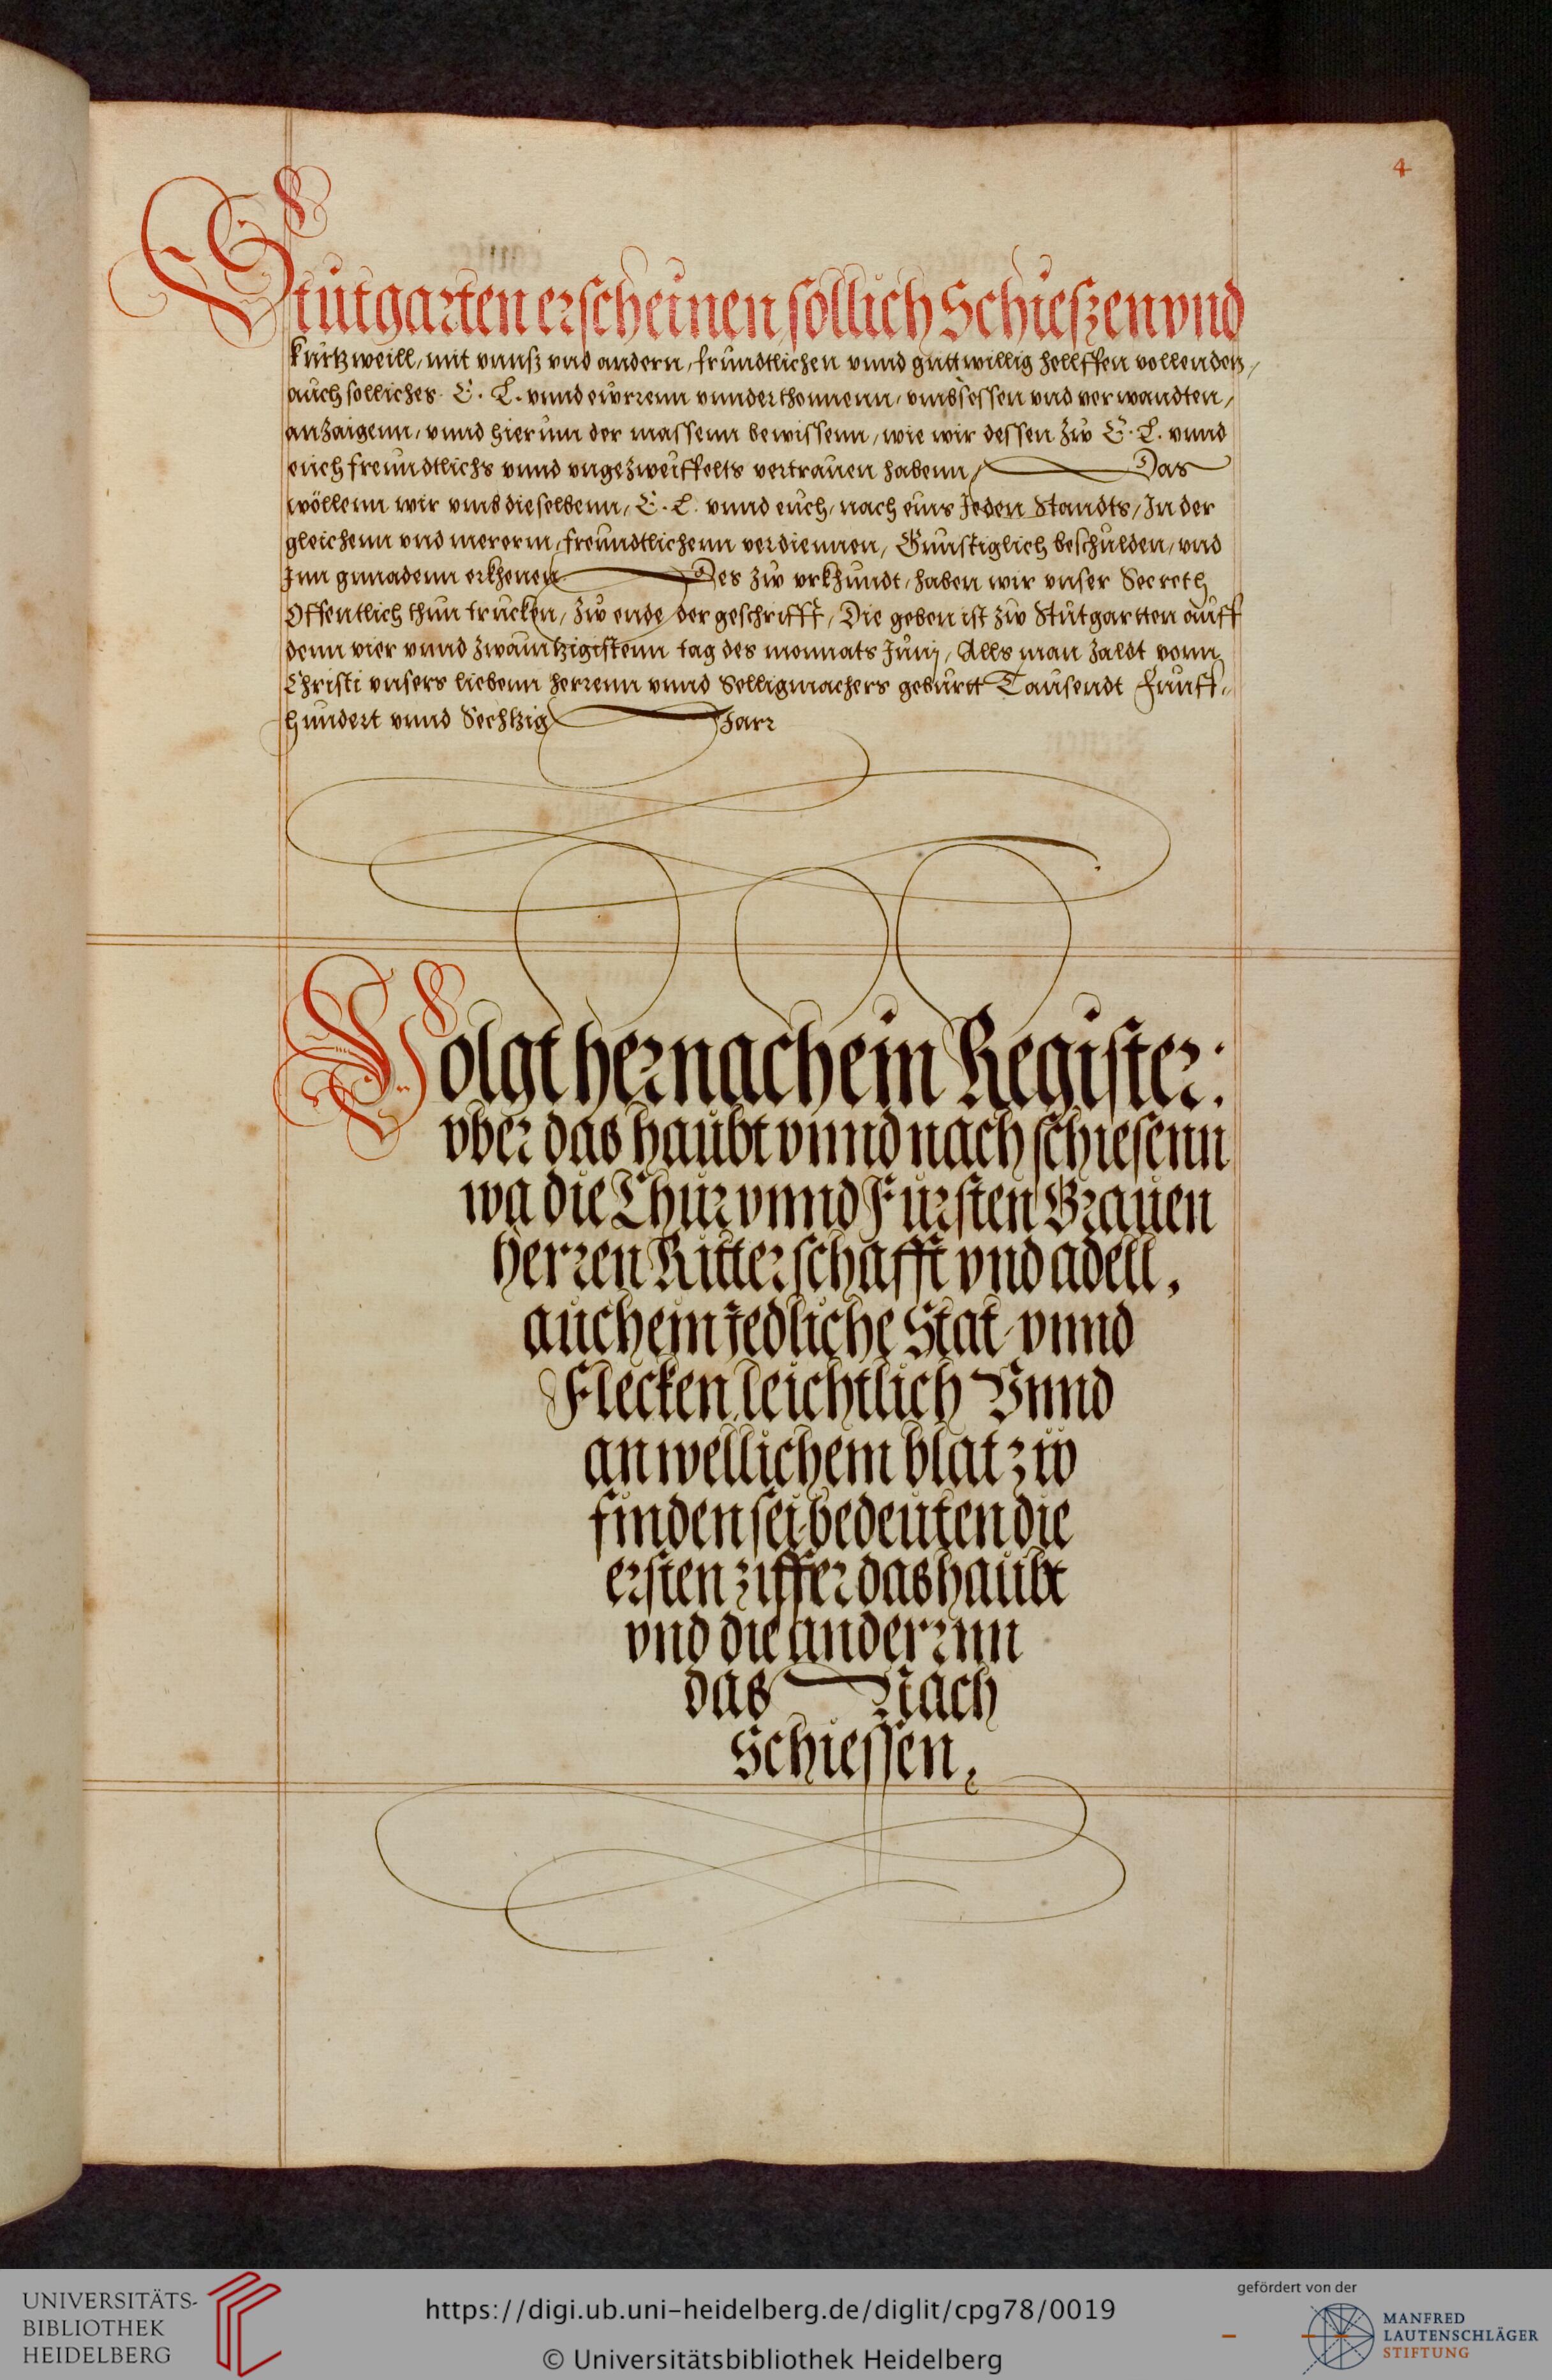 4
Stutgarten erscheinen, söllich Schieszen vnd
kurtzweill, mit vnnsz vnd andern, frundtlichen vnnd guttwillig hellffen vollenden,
auch solliches E. L. vnnd eẅrrenn vnnderthonnenn, vmbsessen vnd verwandten,
anzaigenn, vnnd hierinn der massenn bewissenn, wie wir dessen zẅ E. L. vnnd
euch freundtlichs vnnd vngezweiffelts vertrauen habenn, Das
wöllenn wir vmb dieselbenn, E. L. vnnd euch, nach eins Jeden Standts, In der
gleichenn vnd mererm, freundtlichenn verdiennen, Gunstiglich beschulden, vnd
Inn gnnadenn erkhenen Des zẅ vrkhundt, haben wir vnser Secreth
Offentlich thun trucken, zẅ ende der geschrifft, Die geben ist zẅ Stutgartten auff
denn vier vnnd zwanntzigistenn tag des monnats Junij, Alls man zaldt vonn
Christi vnsers liebenn herrenn vnnd Selligmachers geburtt Tausendt Funff-
hundert vnnd Sechtzig Jarr
Volgt hernach ein Register:
vber das haubt vnnd nach schiesenn
wa die Chur vnnd Fursten Grauen
herren Ritterschafft vnd adell,
auch ein Jedliche Stat vnnd
Flecken leichtlich Vnnd
an wellichem blat zẅ
finden sei bedeuten die
ersten ziffer das haubt
vnd die anderenn
das Nach
Schiessen,
UNIVERSITÄTS-
BIBLIOTHEK
HEIDELBERG
https://digi.ub.uni-heidelberg.de/diglit/cpg78/0019
© Universitätsbibliothek Heidelberg
gefördert von der
MANFRED
LAUTENSCHLÄGER
STIFTUNG